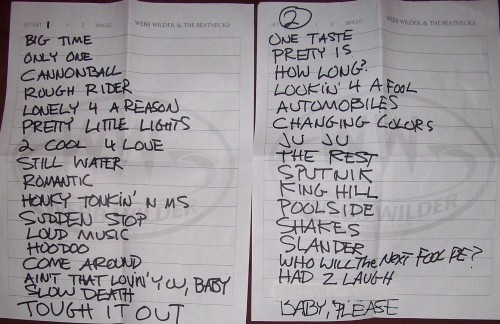 SET LIST 1 1 2 SINGLE WEBB WILDER & THE BEATNECKS
BIG TIME
ONLY ONE
CANNONBALL
ROUGH RIDER
LONELY 4 A REASON
PRETTY LITTLE LIGHTS
2 COOL 4 LOVE
STILL WATER
ROMANTIC
HONKY TONKIN' N MS
SUDDEN STOP
LOUD MUSIC
HOODOO
COME AROUND
AIN'T THAT LOVIN' YOU, BABY
SLOW DEATH
TOUGH IT OUT
WILDER
2 SINGLE WEBB WILDER & THE BEATNECKS
ONE TASTE
PRETTY IS
HOW LONG?
LOOKIN' 4 A FOOL
AUTOMOBILES
CHANGING COLORS
JU JU
THE REST
SPUTNIK
KING HILL
POOLSIDE
SHAKES
SLANDER
WHO WILL THE NEXT FOOL BE?
HAD 2 LAUGH
BABY, PLEASE
WILDER